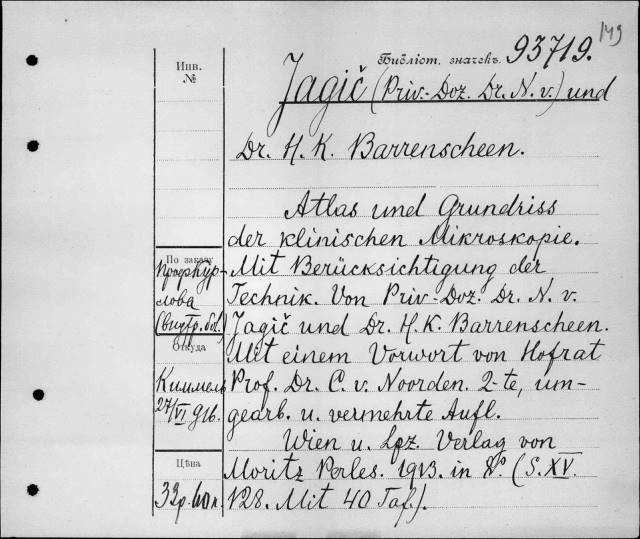 149
Библіот. значекъ 93719.
Инв.
№
Jagič (Priv.-Doz. Dr. N. v.) und
Dr. H. K. Barrenscheen.
Atlas und Grundriss
der klinischen Mikroskopie.
По заказу
проф Кур-
лова
Mit Berücksichtigung der
Technik. Von Priv.-Doz. Dr. N. v.
Jagič und Dr. H. K. Barrenscheen.
Откуда
Mit einem Vorwort von Hofrat
Киммель
27/VI 916.
Prof. Dr. C. v. Noorden. 2-te, um-
gearb. u. vermehrte Aufl.
Wien u. Lpz. Verlag von
Цѣна
Moritz Perles. 1913. in 8º. (S. XV.
33р. 60к.
128. Mit 40 Taf.).